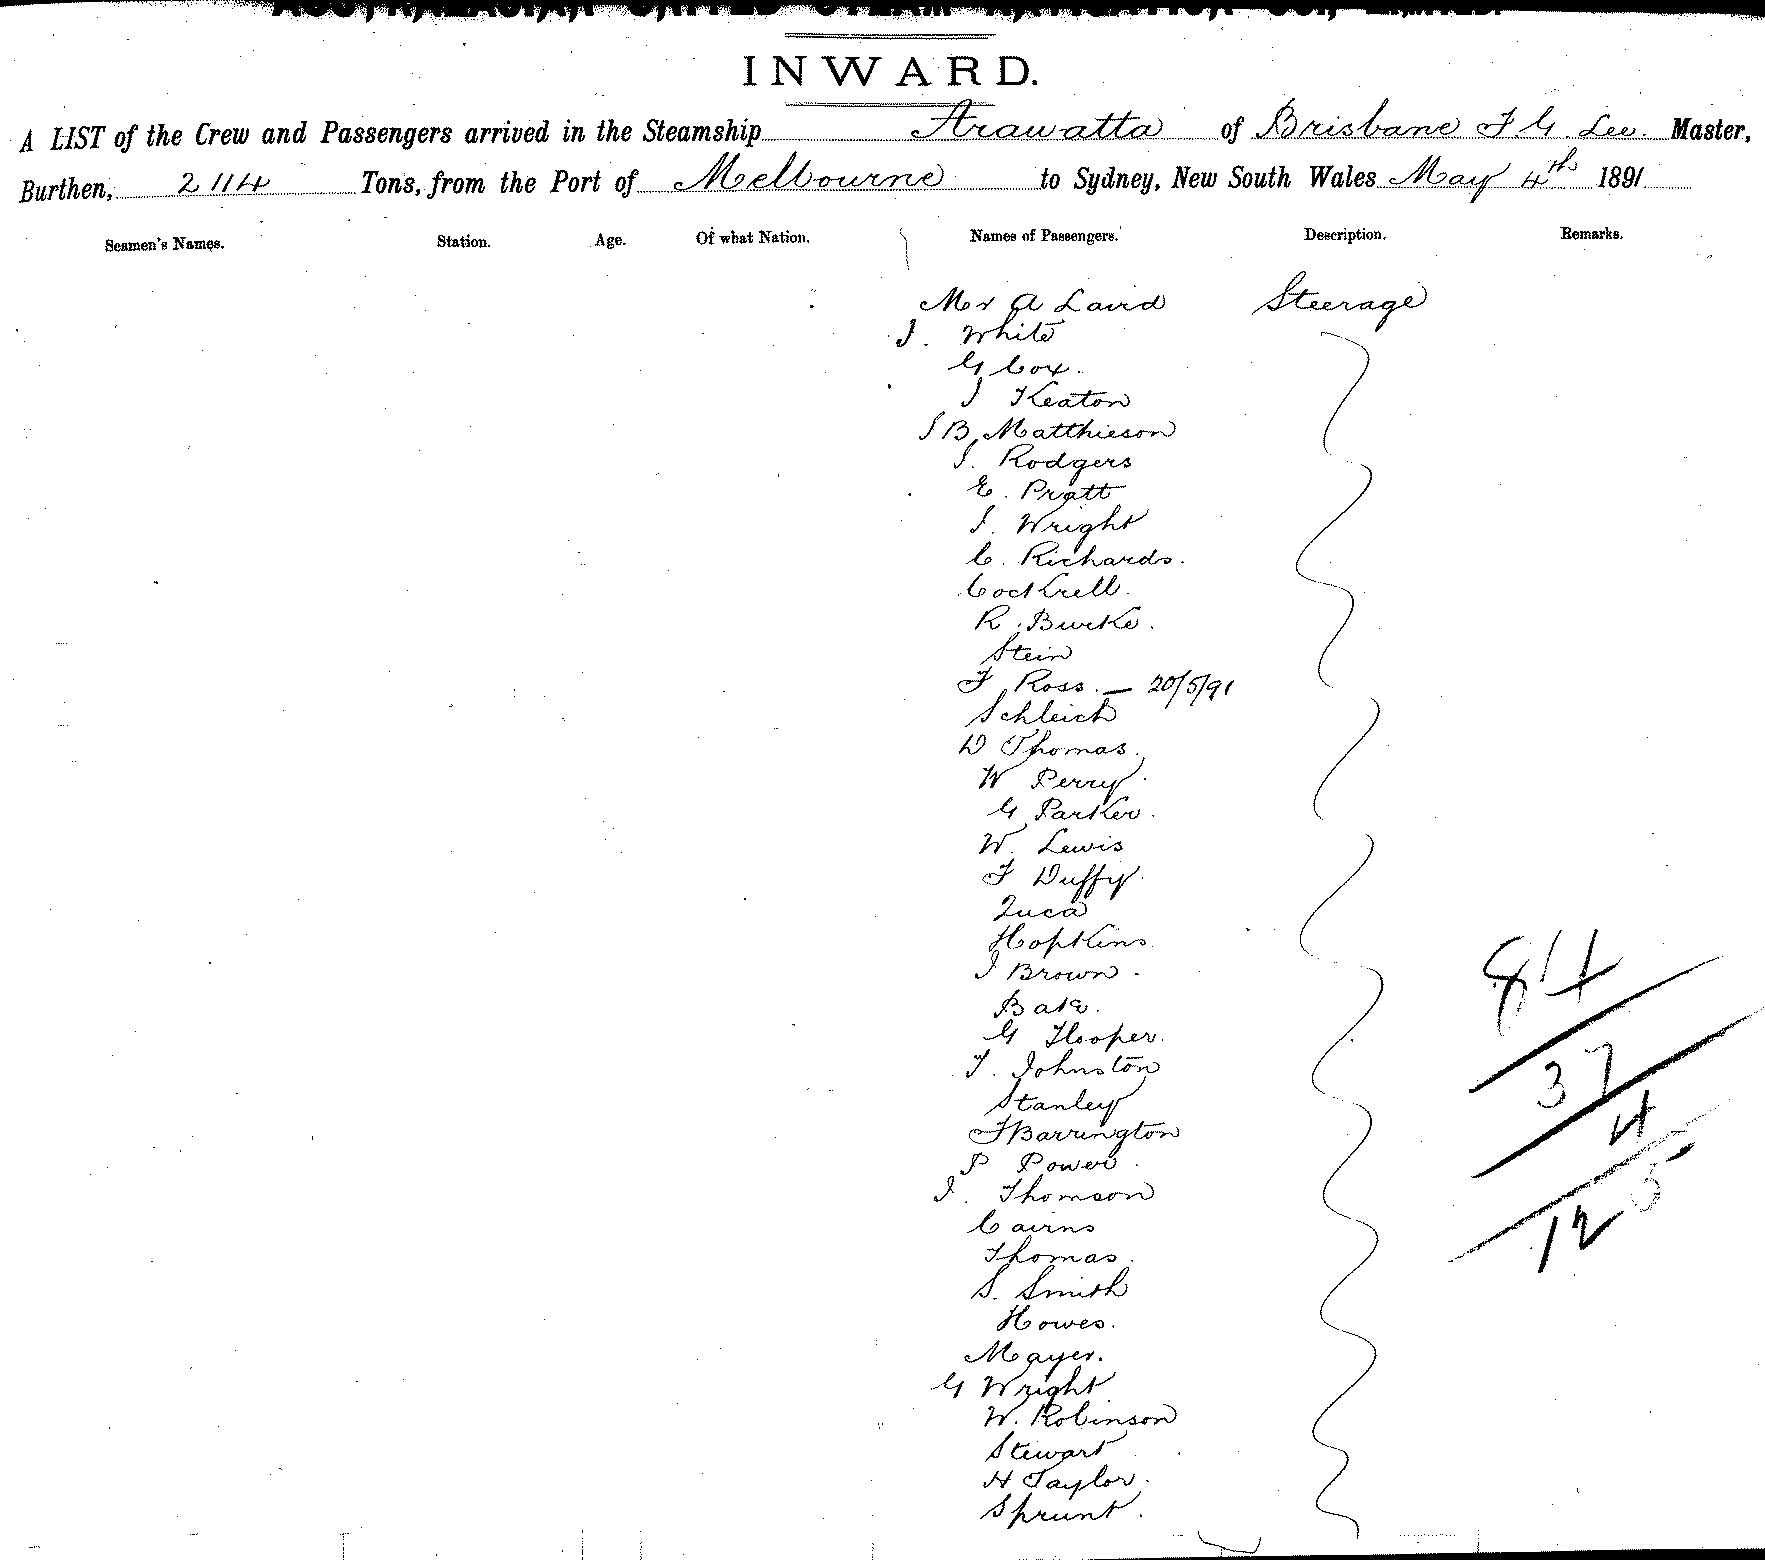 INWARD.
A LIST of the Crew and Passengers arrived in the Steamship Arawatta of Brisbane F G. Lee. Master,
Burthen, 2114 Tons, from the Port of Melbourne to Sydney, New South Wales May 4th 1891
Seamen's Names. Station. Age. Of what Nation. Names of Passengers. Description. Remarks.
Mr A Laird Steerage
J. White
G Cox.
J Keaton
J B Matthieson
J. Rodgers
E. Pratt
J. Wright
C. Richards.
Cockrell.
R. Burke.
Stein
F Ross. — 20/5/91
Schleich
D Thomas.
W Perry.
G Parker.
W. Lewis
F Duffy.
Luca
Hopkins
J Brown.
G Hooper.
T. Johnston
Stanley
F Barrington
P Power.
J. Thomson
Cairns
Thomas.
S. Smith
Howes.
Mayer.
G Wright
W. Robinson
Stewart
H Taylor.
Sprunt.
84
37
4
125